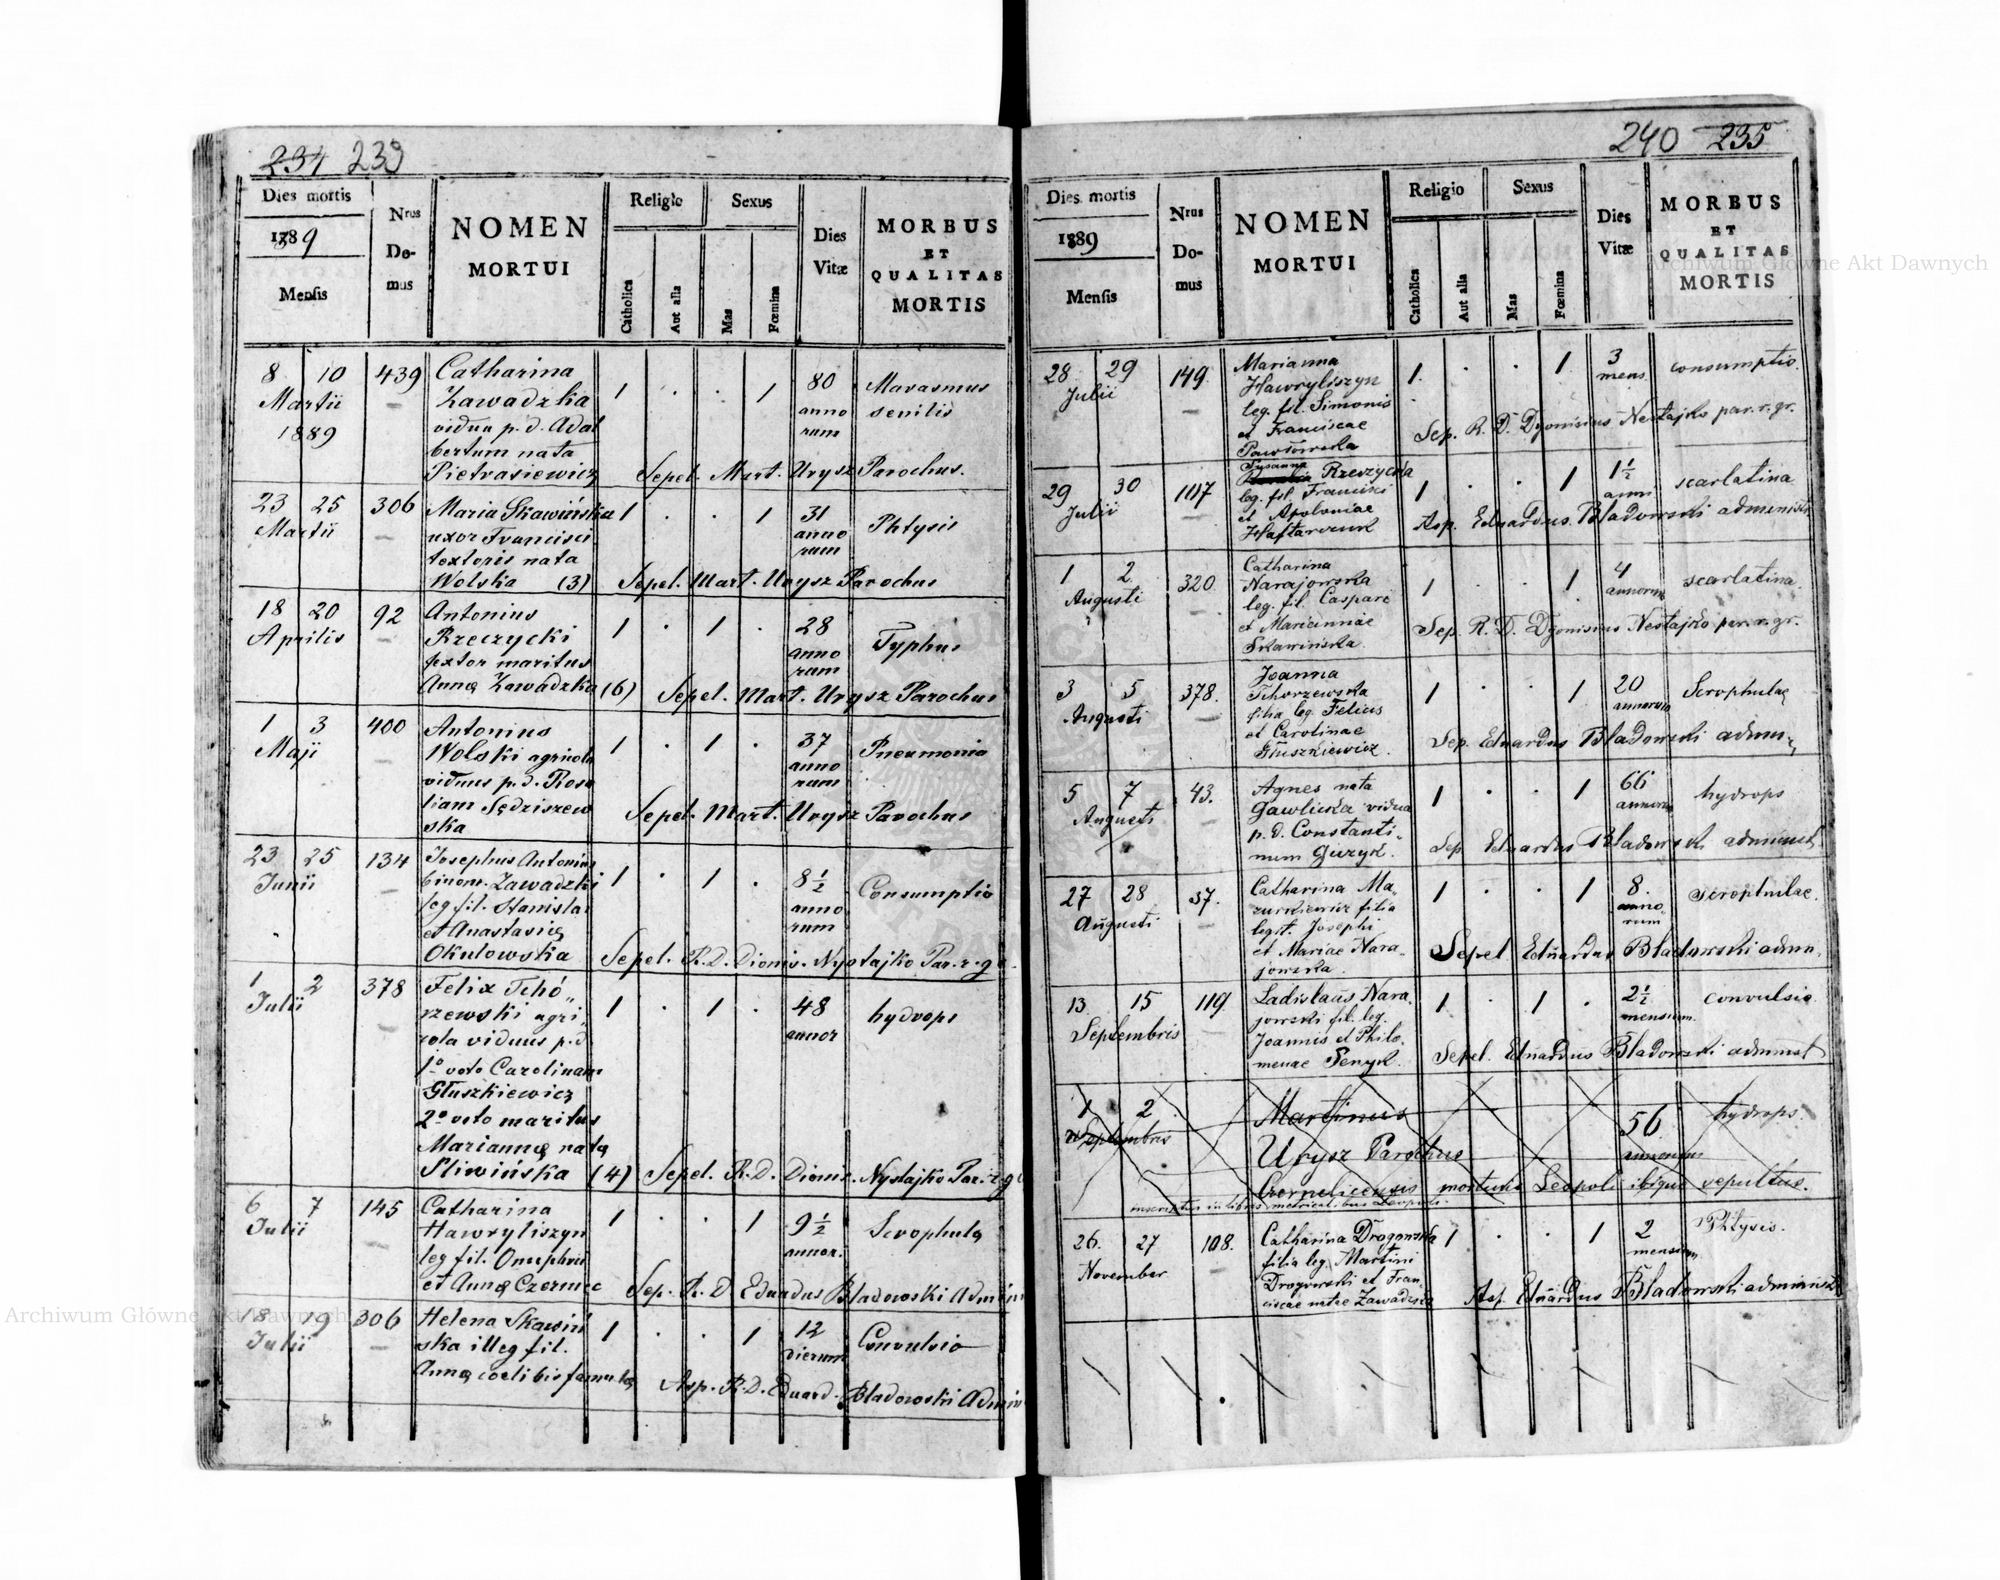 234 239
Dies mortis
1889
Mensis
Nrus Do-mus
NOMEN
MORTUI
Religio
Catholica
Aut alia
Sexus
Mas
Fœmina
Dies
Vitæ
MORBUS
ET
QUALITAS
MORTIS
8 10 439 Catharina 1 . . 1 80 Marasmus
Martii Zawadzka anno senilis
1889 vidua p. d. Adal rum
bertum nata
Pietrasiewicz Sepel. Mart. Urysz Parochus.
23 25 306 Maria Skawińska 1 . . 1 31 Phtysis
Martii uxor Francisci anno
textoris nata rum
Wolska (3) Sepel. Mart. Urysz Parochus
18 20 92 Antonius 1 . 1 . 28 Typhus
Aprilis Rzeczycki anno
textor maritus rum
Annę Zawadzka (6) Sepel. Mart. Urysz Parochus
1 3 400 Antonius 1 . 1 . 37 Pneumonia
Maji Wolski agricola anno
viduus p. d. Rosa rum
liam Sędziszew Sepel. Mart. Urysz Parochus
ska
23 25 134 Josephus Antonius 1 . 1 . 8 1/2 Consumptio
Junii binom. Zawadzki anno
leg fil. Stanislai rum
et Anastasię
Okulowska Sepel. R. D. Dionis. Nystajko Par. r. g.
1 2 378 Felix Tchó„ 1 . 1 . 48 hydrops
Julii rzewski agri„ annor
cola viduus p. d
1º voto Carolinam
Głuszkiewicz
2º voto maritus
Mariannę natę
Sliwińska (4) Sepel. R. D. Dionis. Nystajko Par. r. g
6 7 145 Catharina 1 . . 1 9 1/2 Scrophulę
Julii Hawryliszyn annor.
leg fil. Onuphrii
et Annę Czerniec Sep. R. D. Eduardus Bladowski Admin
18 19 306 Helena Skawiń 1 . . 1 12 Convulsio
Julii ska illeg fil. dierum
Annę coelibis famulę Asp. R. D. Eduard. Bladowski Admin
240 235
Dies mortis
1889
Mensis
Nrus Do-mus
NOMEN
MORTUI
Religio
Catholica
Aut alia
Sexus
Mas
Fœmina
Dies
Vitæ
MORBUS
ET
QUALITAS
MORTIS
28 29 149 Marianna 1 . . 1 3 consumptio
Julii Hawryliszyn mens
leg. fil. Simonis
et Franciscae Sep. R. D. Dyonisius Nestajko par. r. gr.
Pawłowska
Susanna
29 30 107 Rzeczycka 1 . . 1 1 1/2 scarlatina
Julii leg. fil. Francisci anni
et Apoloniae Asp. Eduardus Bladowski administ
Haftarczuk
1 2 320 Catharina 1 . . 1 4 scarlatina
Augusti Narajowska annorum
leg. fil. Caspari
et Mariannae Sep. R. D. Dyonisius Nestajko par. r. gr.
Skawińska
3 5 378. Joanna 1 . . 1 20 Scrophulae
Augusti Tchorzewska annorum
filia leg. Felicis
et Carolinae Sep. Eduardus Bladowski admin.
Głuszkiewicz.
5 7 43. Agnes nata 1 . . 1 66 hydrops
Augusti Gawlicka vidua annorum
p. d. Constanti- Sep. Eduardus Bladowski administ.
num Guzyk.
27 28 37. Catharina Ma- 1 . . 1 8. scrophulae.
Augusti zurkiewicz filia anno
legit. Josephi rum
et Mariae Nara- Sepel Eduardus Bladowski admin.
jowska.
13 15 119. Ladislaus Nara- 1 . 1 . 2 1/2 convulsio.
Septembris jowski fil. leg. mensium.
Joannis et Philo-
menae Senyk. Sepel. Eduardus Bladowski administ
1 2 Martinus 56 hydrops
Septembris Urysz Parochus annorum
Czernelicensis mortuus Leopoli ibique sepultus.
inscriptus in libris metricalibus Leopoli.
26. 27 108. Catharina Drogowska 1 . . 1 2 Phtysis.
November filia leg. Martini mensium
Drogowski et Fran-
ciscae natae Zawadzka Asp. Eduardus Bladowski administ
Archiwum Główne Akt Dawnych
Archiwum Główne Akt Dawnych